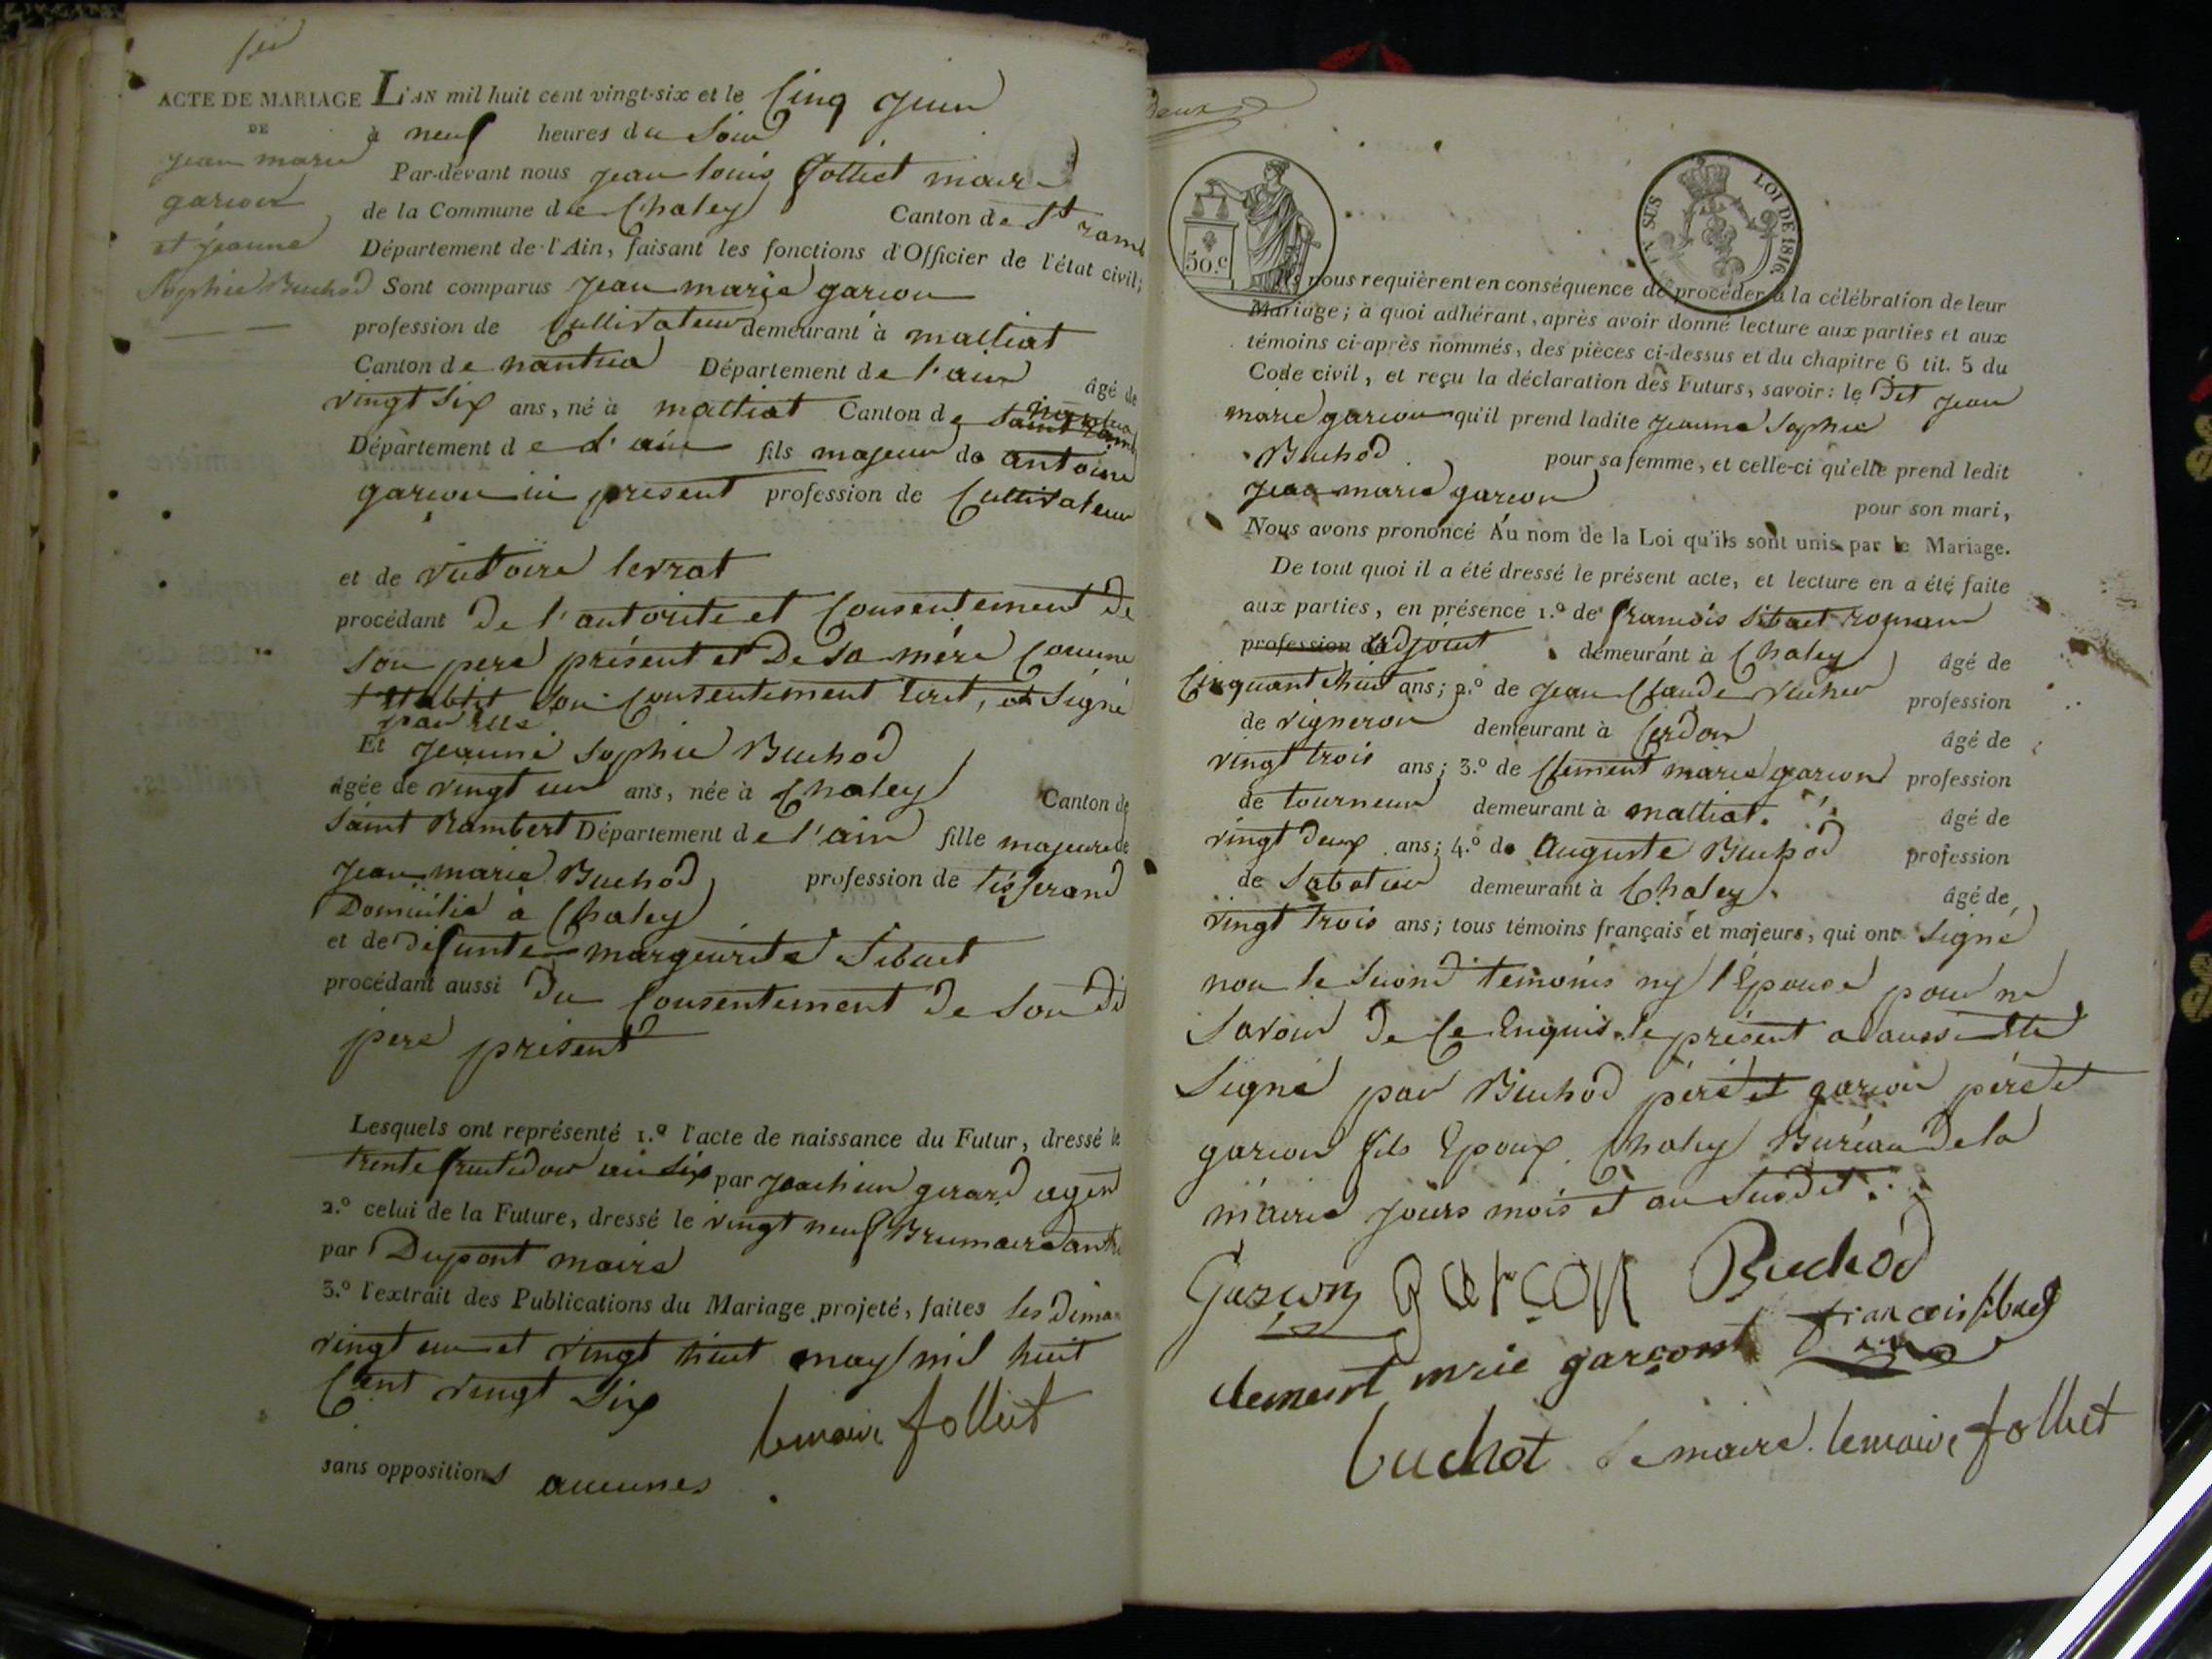 ACTE DE MARIAGE
DE
jean marie
garcon
et jeanne
Sophie Buchod
L'AN mil huit cent vingt-six et le Cinq juin
à neuf heures du Soir
Par-devant nous jean louis folliet maire
de la Commune de Chaley Canton de St ramb
Département de l'Ain, faisant les fonctions d'Officier de l'état civil;
Sont comparus jean marie garcon
profession de Cultivateur demeurant à maltiat
Canton de nantua Département de l'ain âgé de
vingt Six ans, né à maltiat Canton de Saint ramb nantua
Département de l'ain fils majeur de antoine
garcon ici présent profession de Cultivateur
et de victoire levrat
procédant De l'autorité et Consentement De
Son pere présent et De Sa mére Comme
Son Consentement Ecrit, et Signé
par elle
Et jeanne Sophie Buchod
âgée de vingt un ans, née à Chaley Canton de
Saint Rambert Département de l'ain fille majeure de
jean marie Buchod profession de tisserand
Domicilié à Chaley
et de défunte margueurite Sibuet
procédant aussi Du Consentement De Son Dit
pere présent
Lesquels ont représenté 1.º l'acte de naissance du Futur, dressé le
trente fructidor an Six par joachim gerard agent
2.º celui de la Future, dressé le vingt neuf Brumaire an
par Dupont maire
3.º l'extrait des Publications du Mariage projeté, faites les Diman
vingt un et vingt huit may mil huit
Cent vingt Six
lemaire folliet
sans oppositions aucunes
deux
50.c
EN SUS LOI DE 1816
Ils nous requièrent en conséquence de procéder à la célébration de leur
Mariage; à quoi adhérant, après avoir donné lecture aux parties et aux
témoins ci-après nommés, des pièces ci-dessus et du chapitre 6 tit. 5 du
Code civil, et reçu la déclaration des Futurs, savoir: le Dit jean
marie garcon qu'il prend ladite jeanne Sophie
Buchod pour sa femme, et celle-ci qu'elle prend ledit
jean marie garcon pour son mari,
Nous avons prononcé Au nom de la Loi qu'ils sont unis par le Mariage.
De tout quoi il a été dressé le présent acte, et lecture en a été faite
aux parties, en présence 1.º de francois Sibuet
profession adjoint demeurant à Chaley âgé de
Cinquant huit ans; 2.º de jean Claude profession
de vigneron demeurant à Cerdon âgé de
vingt trois ans; 3.º de Clement marie garcon profession
de tourneur demeurant à maltiat. âgé de
vingt Deux ans; 4.º de Auguste Buchod profession
de Sabotier demeurant à Chaley. âgé de
vingt trois ans; tous témoins français et majeurs, qui ont Signé
non le Second témoins ny l'Epouse pour ne
Savoir De Ce Enquis. le présent a aussi été
Signé par Buchod pére et garcon pére et
garcon fils Epoux. Chaley Bureau De la
mairie jours mois et an Susdit.
Garcon garcon Buchod
clement mrie garcont francois sibuet
buchot le maire. lemaire folliet